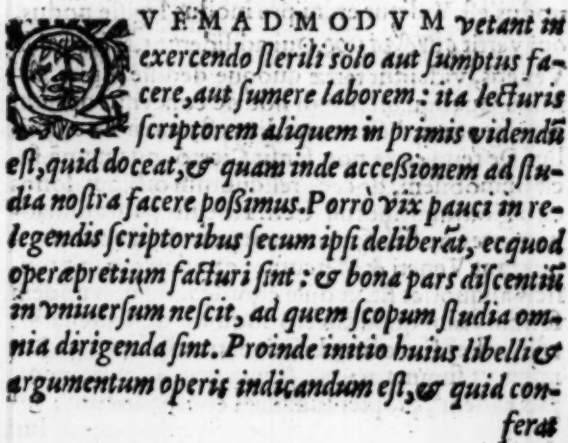 QVEMADMODVM vetant in
exercendo sterili solo aut sumptus fa-
cere, aut sumere laborem: ita lecturis
scriptorem aliquem in primis videndū
est, quid doceat, & quam inde accessionem ad stu-
dia nostra facere possimus. Porrò vix pauci in re-
legendis scriptoribus secum ipsi deliberāt, ecquod
operæpretium facturi sint: & bona pars discentiū
in vniuersum nescit, ad quem scopum studia om-
nia dirigenda sint. Proinde initio huius libelli &
argumentum operis indicandum est, & quid con-
ferat